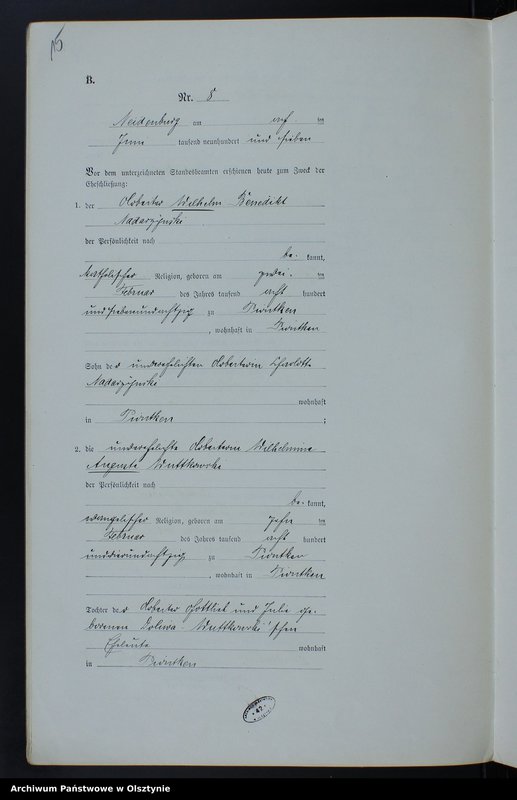 B.
Nr. 8
Neidenburg am acht ten
Juni tausend neunhundert und sieben
Vor dem unterzeichneten Standesbeamten erschienen heute zum Zweck der
Eheschließung:
1. der Arbeiter Wilhelm Benedikt
der Persönlichkeit nach
be kannt,
katholischer Religion, geboren am zwei ten
Februar des Jahres tausend acht hundert
und siebenundachtzig zu
, wohnhaft in
Sohn der unverehelichten Arbeiterin Charlotte
wohnhaft
in ;
2. die unverehelichte Arbeiterin Wilhelmine
Auguste Wuttkowski
der Persönlichkeit nach
be kannt,
evangelischer Religion, geboren am zehn ten
Februar des Jahres tausend acht hundert
undvierundachtzig zu
, wohnhaft in
Tochter der Arbeiter Gottlieb und Julie ge-
borenen Wuttkowski'schen
Eheleute wohnhaft
in
Archiwum Państwowe w Olsztynie